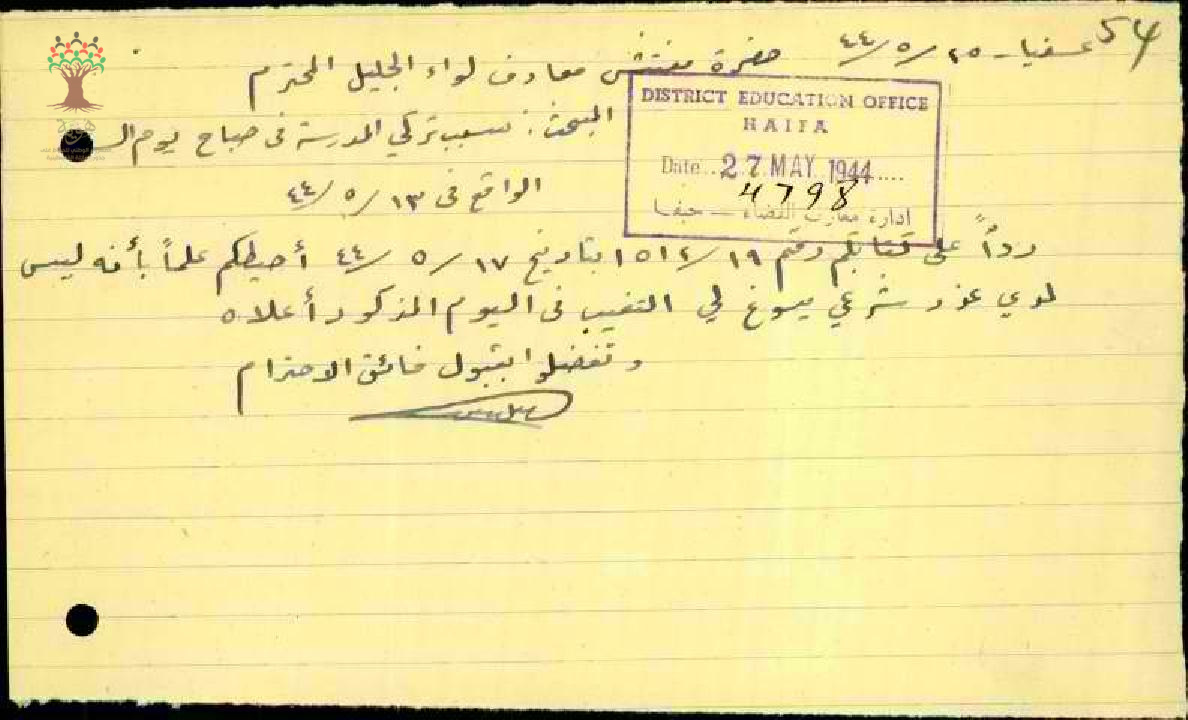 54
عسفيا - ٢٥/٥/٤٤
حضرة مفتش معارف لواء الجليل المحترم
DISTRICT EDUCATION OFFICE
HAIFA
Date..27 MAY 1944.....
4798
ادارة معارف القضاء — حيفا
المبحث: سبب تركي المدرسة في صباح يوم
الواقع في ١٣/٥/٤٤
رداً على كتابكم رقم ١٥١٢/١٩ بتاريخ ١٧/٥/٤٤ أحيطكم علماً بأنه ليس
لدي عذر شرعي يسوغ لي التغيب في اليوم المذكور أعلاه
وتفضلوا بقبول فائق الاحترام